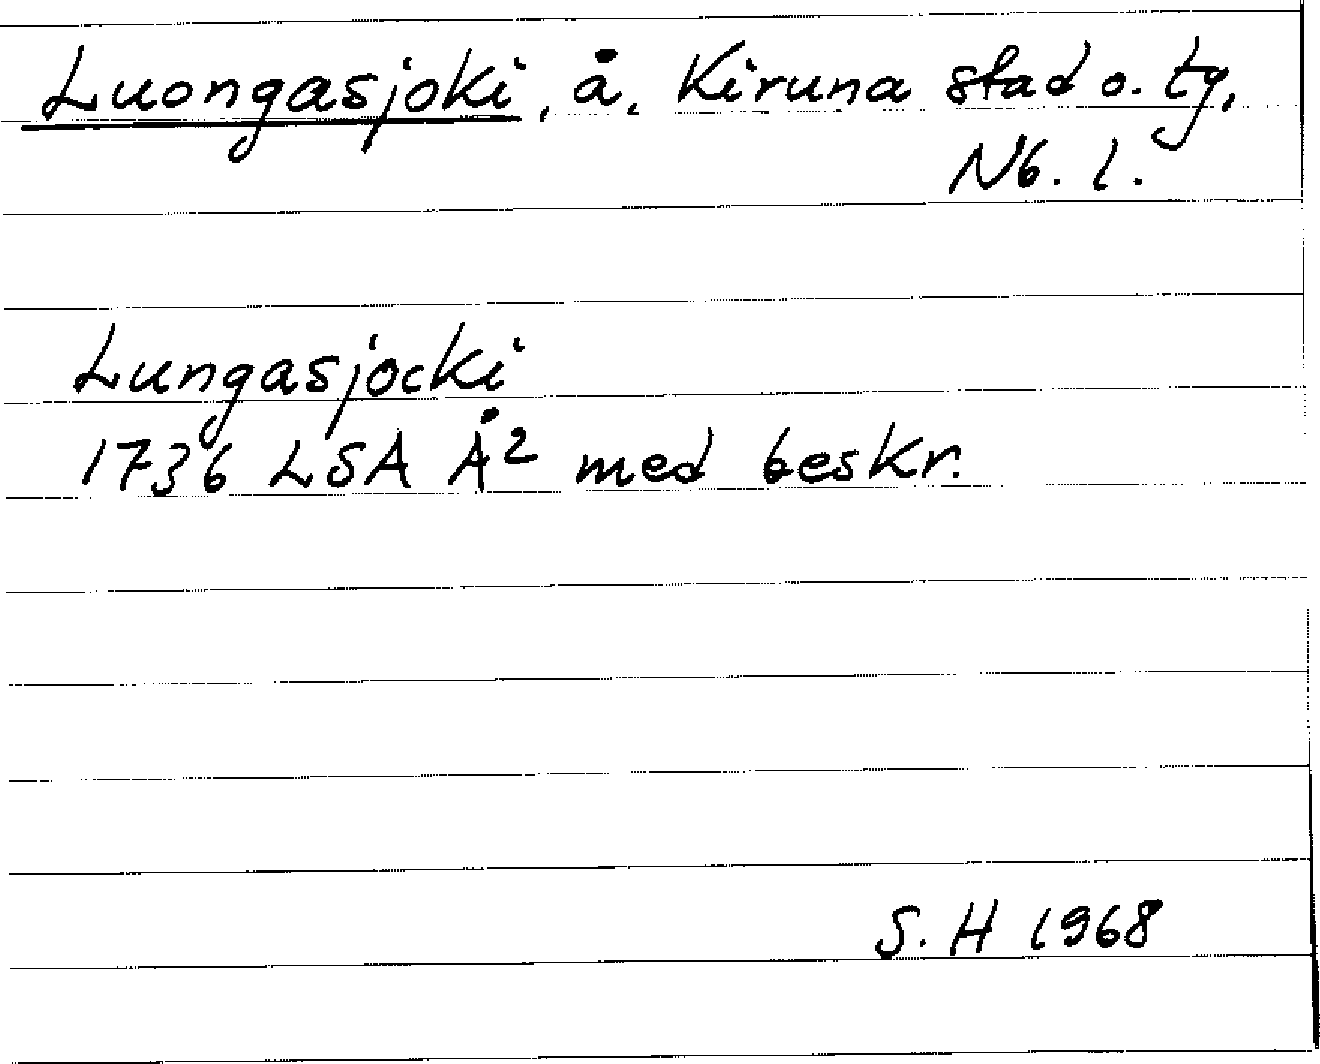 Luongasjoki, å. Kiruna stad o. tg,
Nb. l.
Lungasjocki
1736 LSA Å2 med beskr.
S. H 1968